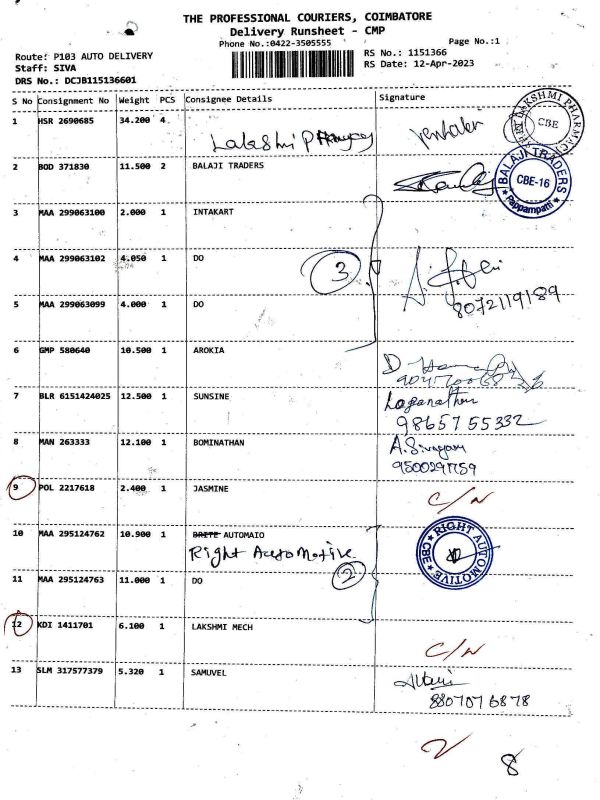 THE PROFESSIONAL COURIERS, COIMBATORE
Delivery Runsheet - CMP
Phone No.:0422-3505555 Page No.:1
Route: P103 AUTO DELIVERY RS No.: 1151366
Staff: SIVA RS Date: 12-Apr-2023
DRS No.: DCJB115136601
S No Consignment No Weight PCS Consignee Details Signature
1 HSR 2690685 34.200 4 Lakshmi
LAKSHMI PHARMACY CBE
2 BOD 371830 11.500 2 BALAJI TRADERS
BALAJI TRADERS CBE-16 Pappampatti
3 MAA 299063100 2.000 1 INTAKART
4 MAA 299063102 4.050 1 DO 3
8072119189
5 MAA 299063099 4.000 1 DO
6 GMP 580640 10.500 1 AROKIA
D
7 BLR 6151424025 12.500 1 SUNSINE Loganathan
9865755332
8 MAN 263333 12.100 1 BOMINATHAN A.Sivagami
9500291759
9 POL 2217618 2.400 1 JASMINE C/N
10 MAA 295124762 10.900 1 BRITE AUTOMAIO
Right Automotive
RIGHT AUTOMOTIVE CBE
2
11 MAA 295124763 11.000 1 DO
12 KDI 1411701 6.100 1 LAKSHMI MECH C/N
13 SLM 317577379 5.320 1 SAMUVEL
8807076878
2 8